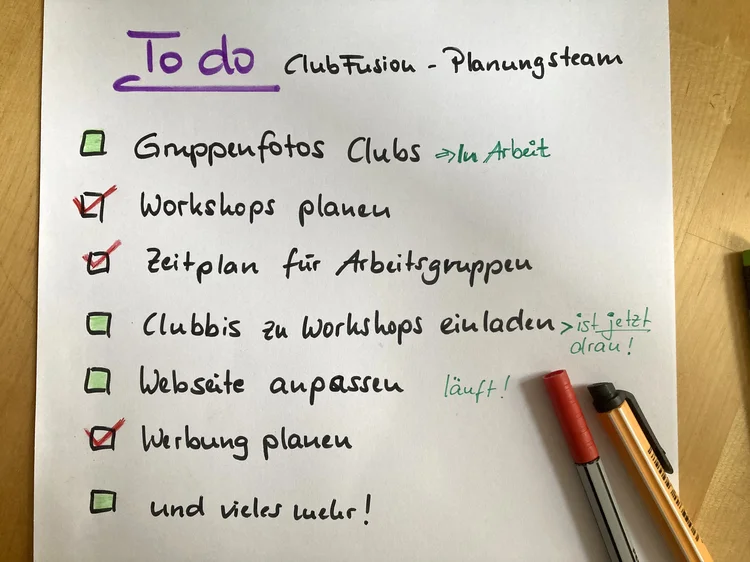 To do ClubFusion - Planungsteam
Gruppenfotos Clubs ⇒ In Arbeit
Workshops planen
Zeitplan für Arbeitsgruppen
Clubbis zu Workshops einladen > ist jetzt
dran!
Webseite anpassen läuft!
Werbung planen
und vieles mehr!